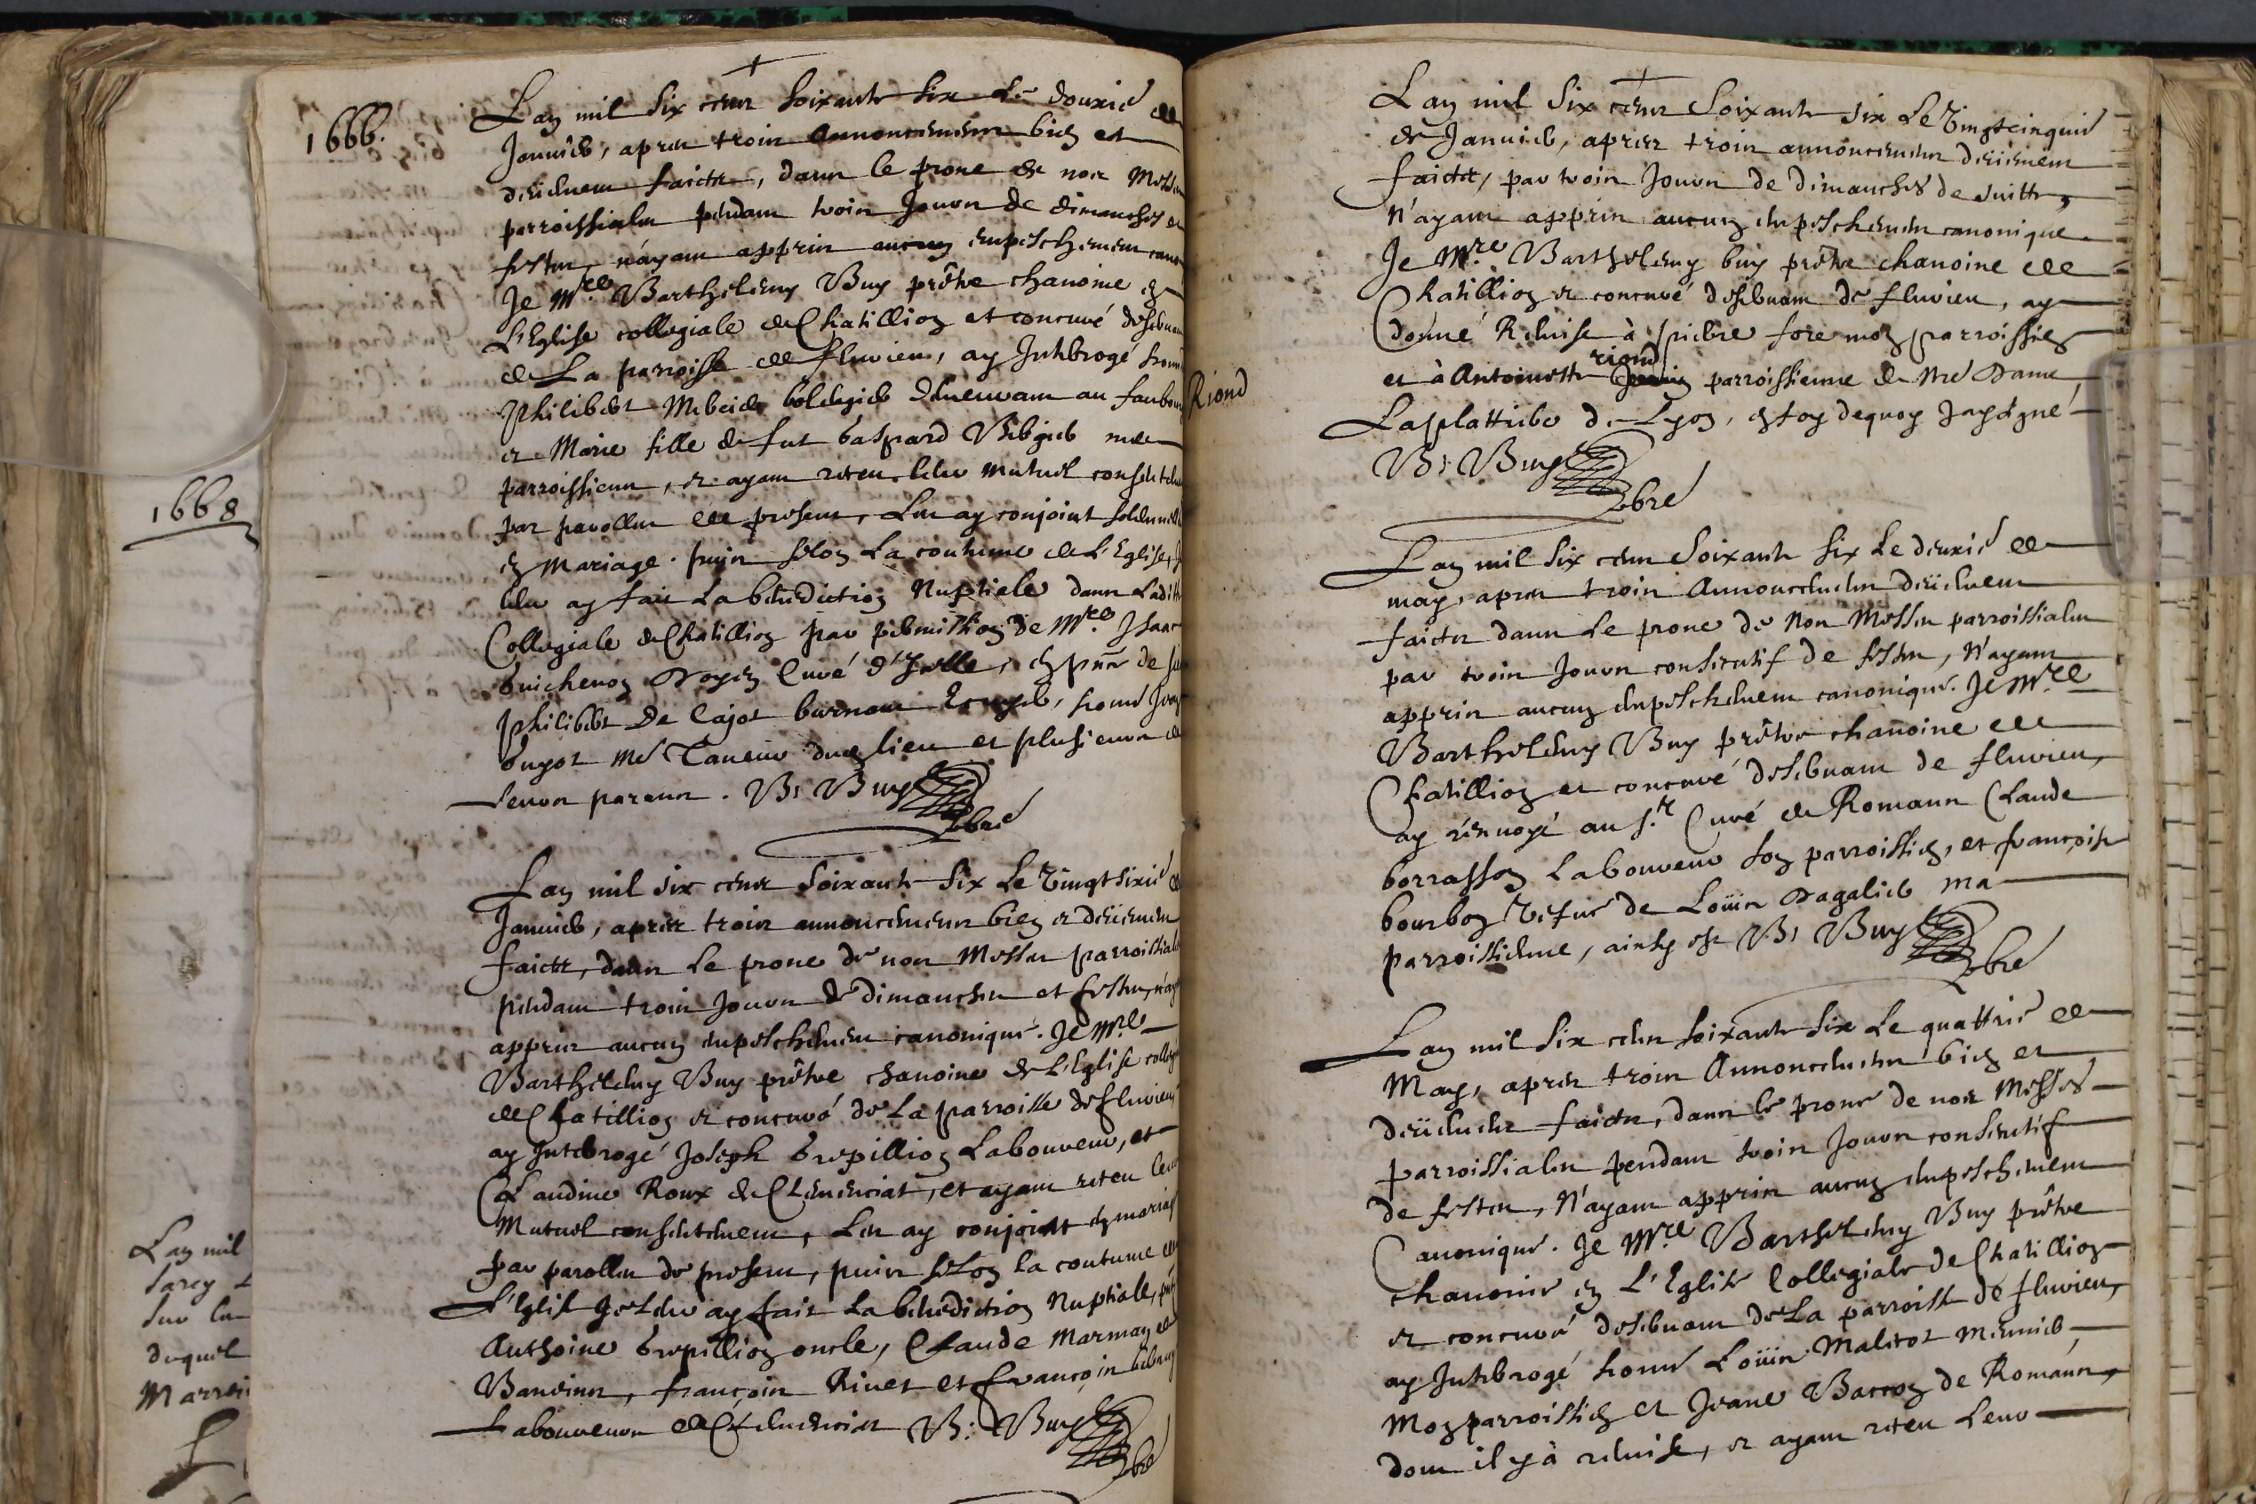 1666.
Lan mil six cens soixante six le douzie de
Janvier, apres trois annoncemens bien et
deüement faicte, dans le prone de nos Messes
parroissiales pendant trois jours de dimanches et
festes, n'ayant appris aucun empeschement cano
Je Mre Barthelemy Buy prêtre chanoine en
L'Eglise collegiale de Chatillion et concuré deservant
de La parroisse de fluvieu, ay Interogé honn
Philibert Mercier bolengier demeurant au faubourg
et Marie fille de fut Gaspard Vergier mes
parroissiens, et ayant receu leur mutuel consentem
par parolles de present, Les ay conjoint solennel
en Mariage. puis selon La coutume de L'Eglise, Je
leur ay fait La benediction Nuptiele dans Ladite
Collegiale de Chatillion par permission de Mre Isaac
Guichenon Doyen Curé d'Icelle, en pnce de
Philibert De Cajot burnom Ecuyer, honn
Guyot Md Taneur dud lieu et plusieurs de
Leurs parens. B: Buy
pbre
Lan mil six cens soixante six Le vingtsixie de
Janvier, apres trois annoncemens bien et deüement
faicte, dans Le prone de nos Messes parroissiales
pendant trois Jours de dimanches et festes, n'ay
appris aucun empeschement canonique. Je Mre
Barthelemy Buy prêtre chanoine de L'Eglise collegi
de Chatillion et concuré de La parroisse de fluvieu,
ay Interogé Joseph Grepillion Laboureur, et
Claudine Roux de Clemenciat, et ayant receu leur
Mutuel consentement, Les ay conjoint en mariag
par parolles de present, puis selon la coutume de
L'Eglise Je Leur ay fait La benediction Nuptiale,
Anthoine Grepillion oncle, Claude Marmay de
Baneins, françois Rivet et françois
Laboureurs de Clemenciat B: Buy
pbre
1668
Lan mil
sur
duquel
Riond
Lan mil Six cens Soixante six Le vingtcinquie
de Janvier, apres trois annoncemens deüement
faicte, par trois Jours de dimanches de suitte,
n'ayant appris aucun empeschement canonique.
Je Mre Barthelemy buy prêtre chanoine de
Chatillion et concuré deservant de fluvieu, ay
donné Remise à pierre fore mon parroissien
riond
et à Antoinette parroissienne de Nre Dame
Laplattiere de Lyon, en foy dequoy Jay signé
B: Buy
pbre
Lan mil six cens Soixante six Le deuxie de
may, apres trois Annoncemens deüement
faicte dans Le prone de Nos Messes parroissiales
par trois Jours consecutif de festes, N'ayant
appris aucun empeschement canonique. Je Mre
Barthelemy Buy prêtre chanoine de
Chatillion et concuré deservant de fluvieu,
ay renvoyé au sr Curé de Romans Claude
borrasson Laboureur son parroissien, et françoise
bourbon vefve de Loüis Dagalier ma
parroissienne, ainsy est B: Buy
pbre
Lan mil six cens soixante six Le quattrie de
May, apres trois Annoncemens bien et
deüement faicte, dans le prone de nos Messes
parroissiales pendant trois Jours consecutif
de festes, N'ayant appris aucun empeschement
Canonique. Je Mre Barthelemy Buy prêtre
chanoine en L'Eglise Collegiale de Chatillion
et concuré deservant de La parroisse de fluvieu,
ay Interogé honn Loüis Malitot meunier
Mon parroissien et Jeane Barron de Romans,
dont il y à remise, et ayant receu Leur